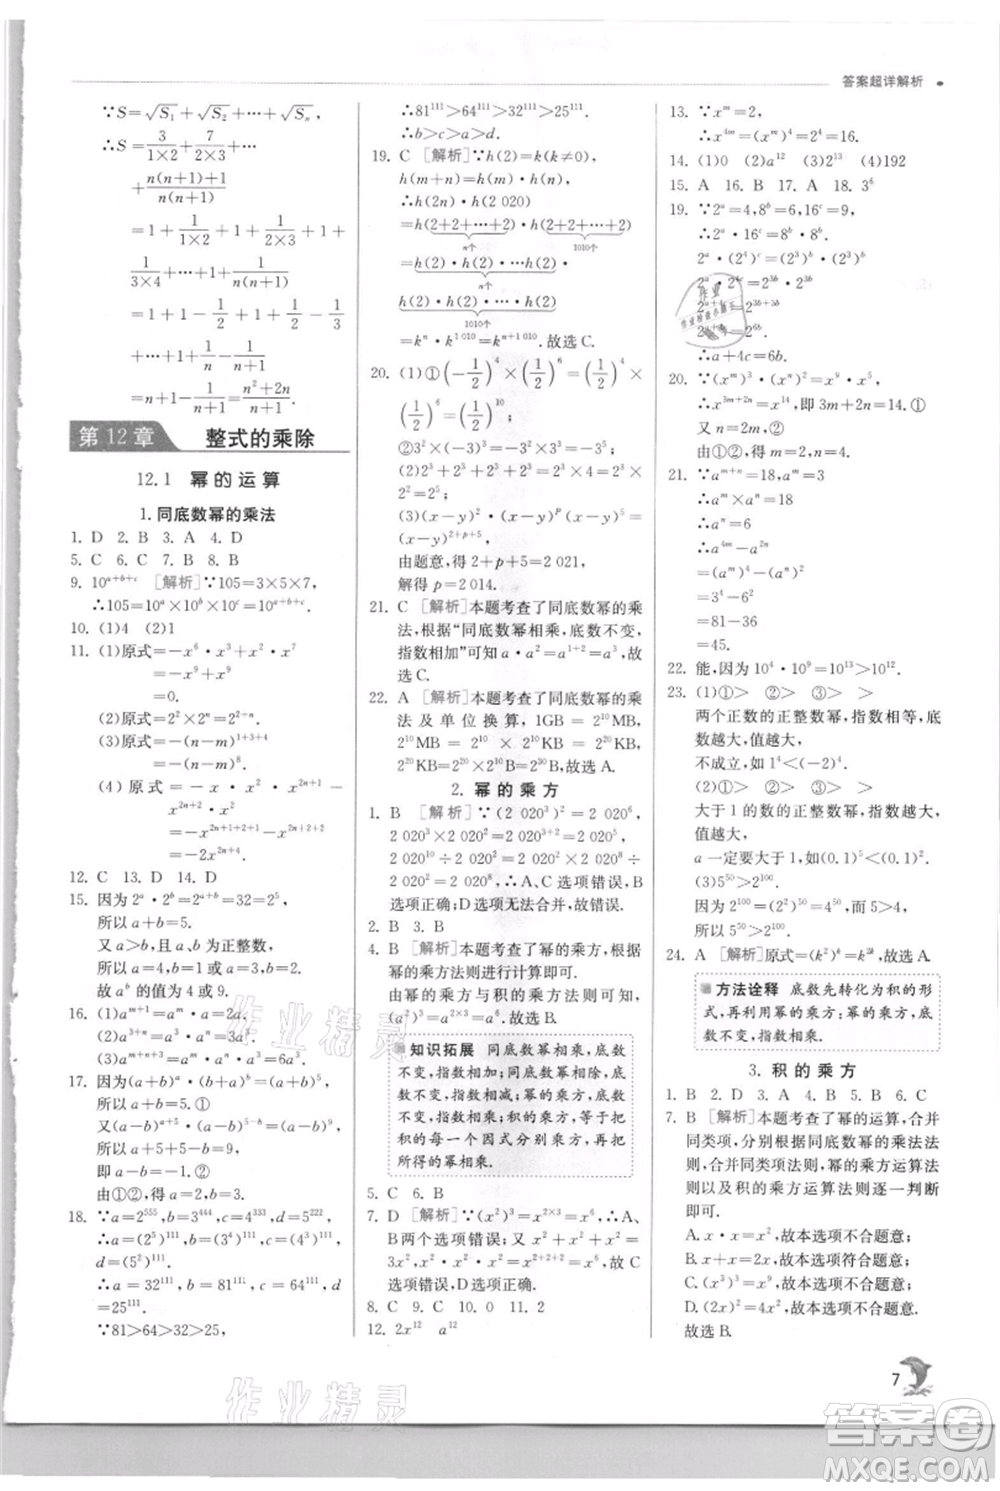 答案超详解析
∵S=√S₁+√S₂+…+√Sₙ,
∴S=3/(1×2)+7/(2×3)+…
+(n(n+1)+1)/(n(n+1))
=1+1/(1×2)+1+1/(2×3)+1+
1/(3×4)+…+1+1/(n(n+1))
=n+1-1/2+1/2-1/3+1/3
+…+1/n-1/(n+1)
=n+1-1/(n+1)=(n²+2n)/(n+1).
第12章 整式的乘除
12.1 幂的运算
1.同底数幂的乘法
1. D 2. B 3. A 4. D
5. C 6. C 7. B 8. B
9. 10^(a+b+c) [解析]∵105=3×5×7,
∴105=10^a×10^b×10^c=10^(a+b+c).
10. (1)4 (2)1
11. (1)原式=-x⁶·x³+x²·x⁷
=-x⁹+x⁹
=0.
(3)原式=-(n-m)^(1+3+4)
=-(n-m)⁸.
(4)原式=-x·x^(2n+1)-x^(2n+2)·x²
=-x^(2n+1+2+1)-x^(2n+4)
=-x^(2n+4)-x^(2n+4)
=-2x^(2n+4).
12. C 13. D 14. D
15. 因为2^a·2^b=2^(a+b)=32=2⁵,
所以a+b=5.
又a,b均为正整数,
所以a=1,b=4或a=2,b=3或
a=3,b=2或a=4,b=1.
故a^b的值为4或9.
16. (1)a^(m+1)=a^m·a=2a.
(2)a^(3+n)=a³·a^n=3a³.
(3)a^(m+n+1)=a^m·a^n·a=6a.
17. ∵(a+b)^a·(a+b)^b=(a+b)^(a+b)=
(a+b)⁵,∴a+b=5.①
又(a-b)^(a+4)·(a-b)^(5-b)=(a-b)⁷,
∴a+4+5-b=7.
即a-b=-2.②
由①②,得a=3/2,b=7/2.
18. ∵a=2⁵⁵⁵,b=3⁴⁴⁴,c=4³³³,d=5²²²,
∴a=(2⁵)¹¹¹,b=(3⁴)¹¹¹,c=(4³)¹¹¹,
d=(5²)¹¹¹.
∴a=32¹¹¹,b=81¹¹¹,c=64¹¹¹,d=
25¹¹¹.
∵81>64>32>25,
∴81¹¹¹>64¹¹¹>32¹¹¹>25¹¹¹.
∴b>c>a>d.
19. C [解析]∵h(2)=k(k≠0),
h(m+n)=h(m)·h(n),
∴h(2n)·h(2 020)
=h(2+2+…+2)·h(2+2+…+2)
n个 1010个
=h(2)·h(2)·…·h(2)·
n个
h(2)·h(2)·…·h(2)
1010个
=k^n·k^(1 010)=k^(n+1 010).故选C.
20. (1)①(-1/2)⁴×(1/2)⁶=(1/2)⁴×
(1/2)⁶=(1/2)¹⁰;
②3²×(-3)³=-3²×3³=-3⁵.
(2)2³+2³=2×2³=2⁴;2⁴+
2⁴=2⁵;2^n+2^n=2^(n+1).
(3)(x-y)²(x-y)^p(x-y)⁵=
(x-y)^(2+p+5).
由题意,得2+p+5=2 021,
解得p=2 014.
21. C [解析]本题考查了同底数幂的乘
法,根据“同底数幂相乘,底数不变,
指数相加”可知a·a²=a^(1+2)=a³.故
选C.
22. A [解析]本题考查了同底数幂的乘
法及单位换算,1GB=2¹⁰MB,
2¹⁰MB=2¹⁰×2¹⁰KB=2²⁰KB,
2²⁰KB=2²⁰×2¹⁰B=2³⁰B.故选A.
2.幂的乘方
1. B [解析]∵(2 020³)²=2 020⁶;
2 020³×2 020²=2 020³⁺²=2 020⁵;
2 020⁷÷2 020²=2 020⁵,∴A、C选项错误,
B选项正确;D选项无法合并.故选B.
2. B 3. B
4. B [解析]本题考查了幂的乘方,根据
幂的乘方法则进行计算即可.
由幂的乘方与积的乘方法则可知,
(a²)³=a^(2×3)=a⁶.故选B.
知识拓展 同底数幂相乘,底数
不变,指数相加;同底数幂相除,底
数不变,指数相减;幂的乘方,底数
不变,指数相乘;积的乘方,等于把
积的每一个因式分别乘方,再把
所得的幂相乘.
5. C 6. B
7. D [解析]∵(x²)³=x^(2×3)=x⁶,∴A、
B两个选项错误;又x²+x²+x²=
3x²,x²·x²·x²=x^(2+2+2)=x⁶,∴
C选项错误,D选项正确.
8. C 9. C 10. 0 11. 2
12. 2x¹² a¹²
13. ∵x^m=2,
∴x^(4m)=(x^m)⁴=2⁴=16.
14. (1)0 (2)a¹² (3)2¹³ (4)192
15. A 16. B 17. A 18. 3⁶
19. ∵2^a=4,8^b=6,16^c=9,
∴2^a·16^c=8^b·8^b,
2^a·(2⁴)^c=(2³)^b·(2³)^b,
2^a·2^(4c)=2^(3b)·2^(3b),
2^(a+4c)=2^(6b).
∴a+4c=6b.
20. ∵(x^m)³·(x^n)²=x¹⁴,
∴x^(3m+2n)=x¹⁴,即3m+2n=14.①
又n=2m,②
由①②,得m=2,n=4.
21. ∵a^(m+n)=18,a^m=3,
∴a^m×a^n=18
∴a^n=6.
∴a^(4m)-a^(2n)
=(a^m)⁴-(a^n)²
=3⁴-6²
=81-36
=45.
22. 能,因为10⁴·10⁹=10¹³>10¹².
23. (1)①> ②> ③> ④>
两个正数的正整数幂,指数相等,底
数越大,值越大.
如1⁴<(-2)⁴.
(2)①> ②> ③> ④>
大于1的数的正整数幂,指数越大,
值越大.
a一定要大于1,如(0.1)³<(0.1)².
(3)5⁵⁰>2¹⁰⁰.
因为2¹⁰⁰=(2²)⁵⁰=4⁵⁰,而5>4,
所以5⁵⁰>2¹⁰⁰.
24. A [解析]原式=(k²)^k=k^(2k).故选A.
方法诠释 底数先转化为积的形
式,再利用幂的乘方:幂的乘方,底
数不变,指数相乘.
3.积的乘方
1. B 2. D 3. A 4. B 5. B 6. C
7. B [解析]本题考查了幂的运算,合并
同类项,分别根据同底数幂的乘法法
则,合并同类项法则,幂的乘方运算法
则以及积的乘方运算法则逐一判断
即可.
A.x·x=x²,故本选项不合题意;
B.x+x=2x,故本选项符合题意;
C.(x³)³=x⁹,故本选项不合题意;
D.(2x)²=4x²,故本选项不合题意.
故选B.
7
作业精灵
作业精灵
答案圈
MXQE.COM